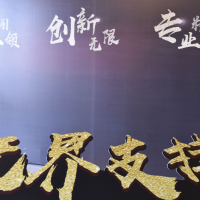 领
创新
无限
专业
无界支持